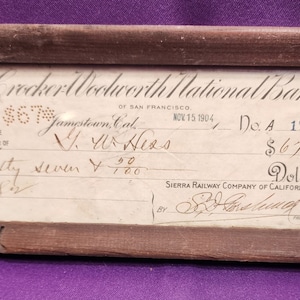 Crocker-Woolworth National Ban
OF SAN FRANCISCO.
$67
Jamestown, Cal. NOV 15 1904 No. A 1
OF W Hess $67
seven & 50/100 Dol
SIERRA RAILWAY COMPANY OF CALIFOR
BY